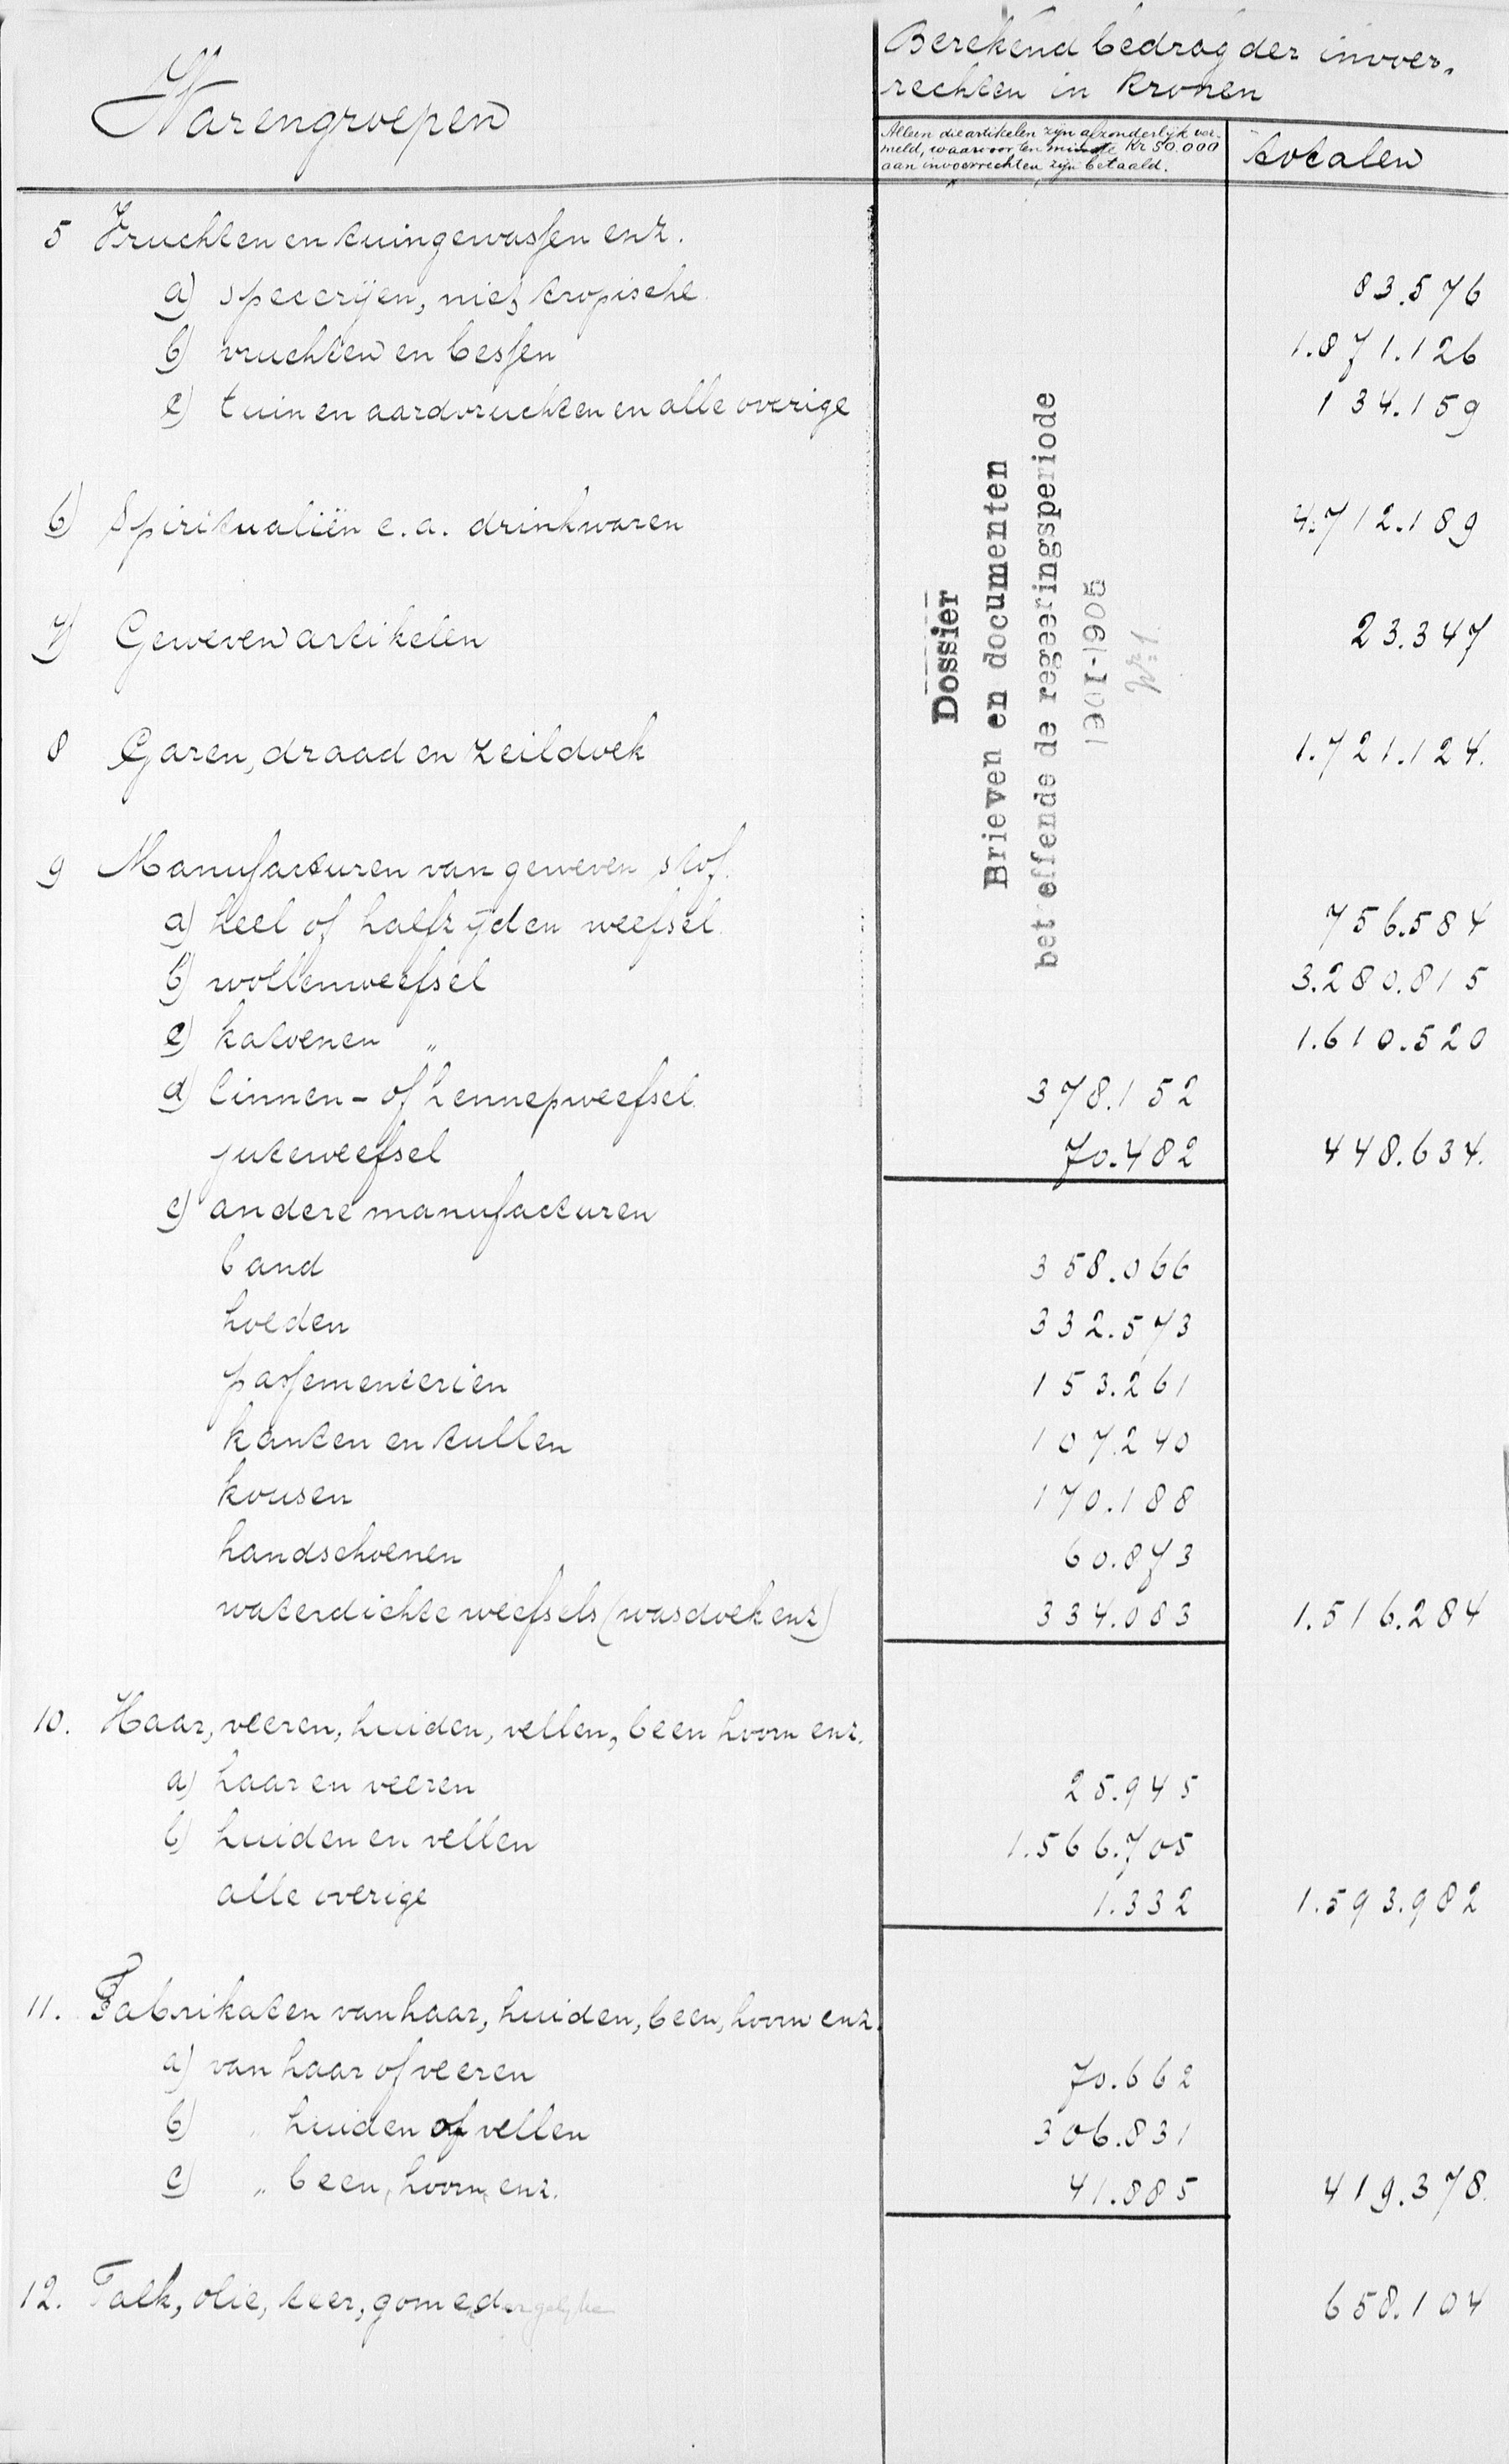 Warengroepen
Berekend bedrag der invoer-
rechten in Kronen
Alleen die artikelen zijn afzonderlijk ver-
meld, waarvoor ten minste Kr 50.000
aan invoerrechten zijn betaald.
totalen
5 Vruchten en tuingewassen enz.
a) specerijen, niet tropische 83.576
b) vruchten en bessen 1.871.126
c) tuin en aardvruchten en alle overige 134.159
6) Spiritualiën e.a. drinkwaren 4.712.189
7) Geweven artikelen 23.347
8 Garen, draad en zeildoek 1.721.124.
9 Manufacturen van geweven stof.
a) heel of halfzijden weefsel 756.584
b) wollenweefsel 3.280.815
c) katoenen " 1.610.520
d) linnen- of hennepweefsel 378.152
juteweefsel 70.482 448.634.
e) andere manufacturen
band 358.066
hoeden 332.573
passementeriën 153.261
kanten en tullen 107.240
kousen 170.188
handschoenen 60.873
waterdichte weefsels (wasdoek enz) 334.083 1.516.284
10. Haar, veeren, huiden, vellen, been hoorn enz.
a) haar en veeren 25.945
b) huiden en vellen 1.566.705
alle overige 1.332 1.593.982
11. Fabrikaten van haar, huiden, been, hoorn enz.
a) van haar of veeren 70.662
b) " huiden of vellen 306.831
c) " been, hoorn, enz. 41.885 419.378.
12. Talk, olie, teer, gom en dergelijke 658.104
Dossier
Brieven en documenten
betreffende de regeeringsperiode
1901-1905
Nr. 1.